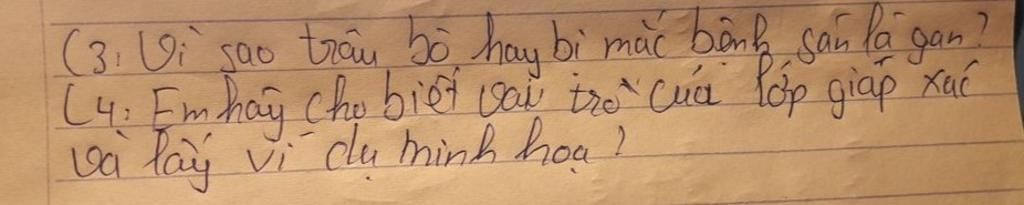 C3: Vì sao trâu bò hay bị mắc bệnh sán lá gan?
C4: Em hãy cho biết vai trò của lớp giáp xác
và lấy ví dụ minh hoạ?